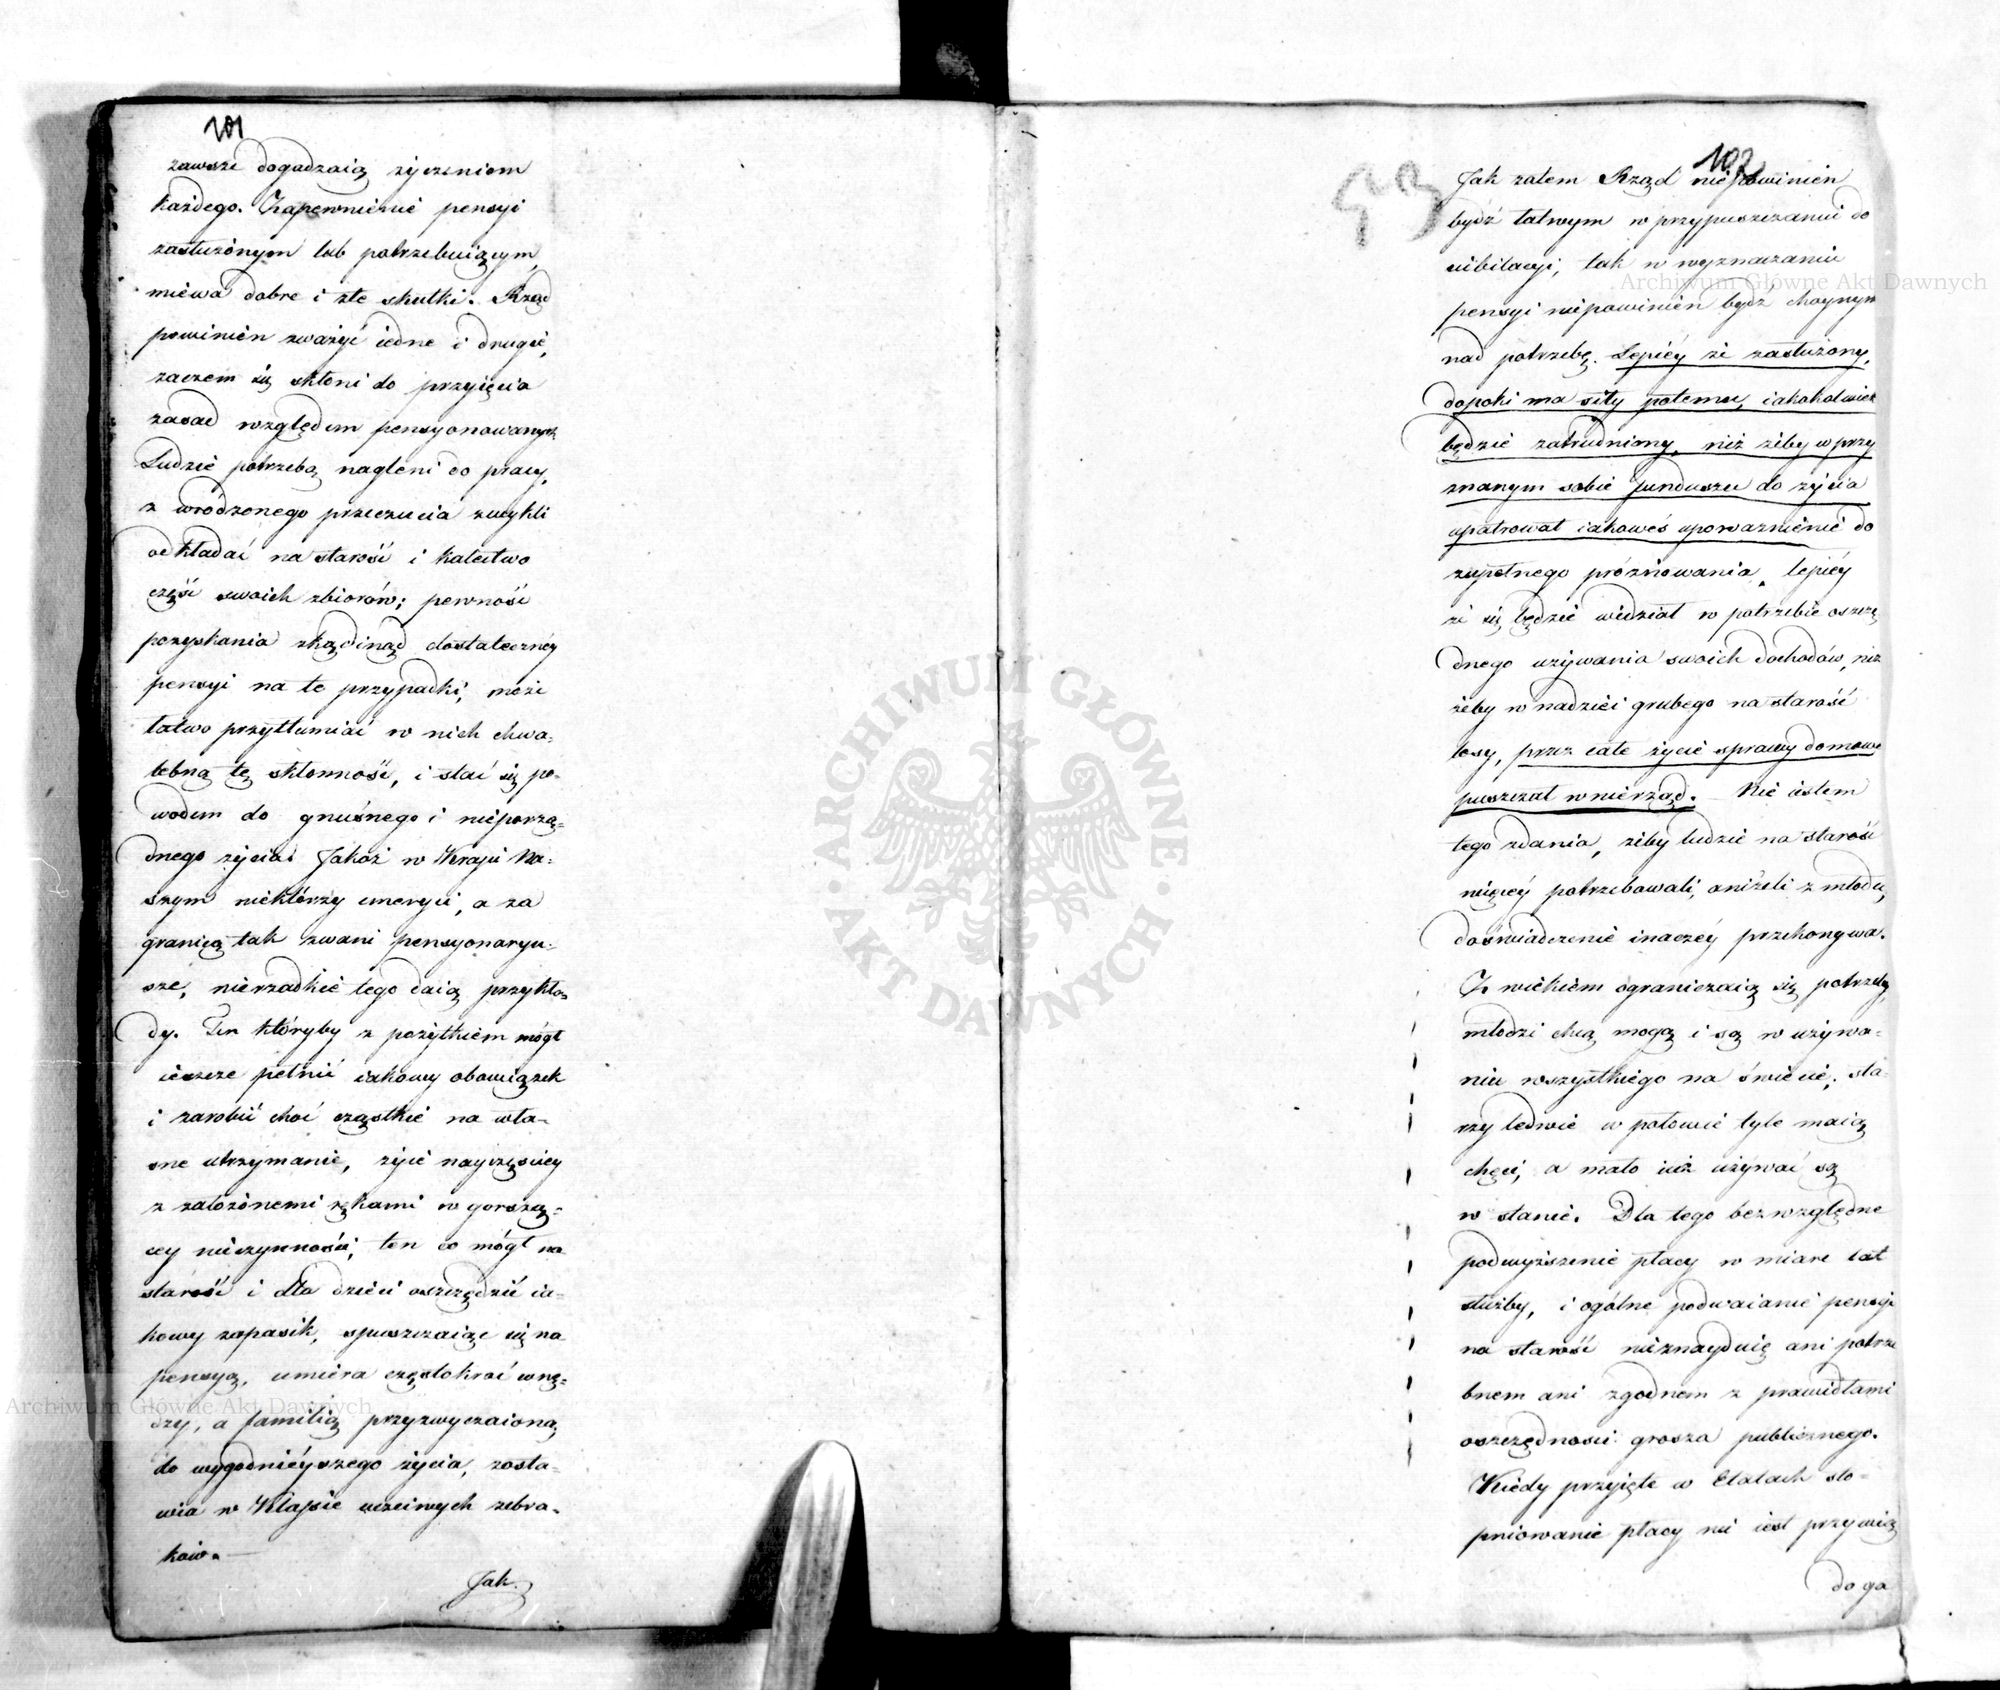 101
zawsze dogadzaią życzeniom
każdego. Zapewnienie pensyi
zasłużonym lub potrzebuiącym,
miewa dobre i złe skutki. Rząd
powinien zważyć iedne i drugie,
zaczem się skłoni do przyięcia
zasad względem pensyonowanych
Ludzie potrzebą nagleni do pracy,
z wrodzonego przeczucia zwykli
odkładać na starość i kalectwo
część swoich zbiorów; pewność
pozyskania zkądinąd dostateczney
pensyi na te przypadki, może
łatwo przytłumiać w nich chwa-
lebną tę skłonność, i stać się po-
wodem do gnuśnego i nieporzą-
dnego życia. Jakoż w Kraju Na-
szym niektórzy emeryci, a za
granicą tak zwani pensyonaryu-
sze, nierzadkie tego daią przykła-
dy. Ten któryby z pożytkiem mógł
ieszcze pełnić iakowy obowiązek
i zarobić choć cząstkie na wła-
sne utrzymanie, żyie nayczęściey
z założonemi rękami w gorszą-
cey nieczynności; ten co mógł na
starość i dla dzieci oszczędzić ia-
kowy zapasik, spuszczaiąc się na
pensyą, umiera częstokroć w nę-
dzy, a familią przyzwyczaioną
do wygodnieyszego życia, zosta-
wia w Klassie uczciwych żebra-
ków.
Jak
102
53
Jak zatem Rząd niepowinien
bydź łatwym w przypuszczaniu do
iubilacyi, tak w wyznaczaniu
pensyi niepowinien bydź hoynym
nad potrzebę. Lepiéy że zasłużony,
dopoki ma siły potemu, iakokolwiek
będzie zatrudniony, niż żeby w przy
znanym sobie funduszu do życia
upatrował iakoweś upoważnienie do
zupełnego próżnowania, lepiéy
że się będzie widział w potrzebie oszczę
dnego używania swoich dochodów, niż
żeby w nadziei grubego na starość
losy, przez całe życie sprawy domowe
puszczał w nierząd. Nie iestem
tego zdania, żeby ludzie na starość
więcéy potrzebowali, aniżeli z młodu,
doświadczenie inaczéy przekonywa.
Z wiekiem ograniczaią się potrzeby,
młodzi chcą mogą i są w używa-
niu wszystkiego na świecie; sta-
rzy ledwie w połowie tyle maią
chęci, a mało iuż używać są
w stanie. Dla tego bezwzględne
podwyższenie płacy w miarę lat
służby, i ogólne podwaianie pensyi
na starość nieznayduię ani potrze
bnem ani zgodnem z prawidłami
oszczędności grosza publicznego.
Kiedy przyięte w Etatach sto-
pniowanie płacy nie iest przywią
do ga
Archiwum Główne Akt Dawnych
Archiwum Główne Akt Dawnych
ARCHIWUM GŁÓWNE AKT DAWNYCH